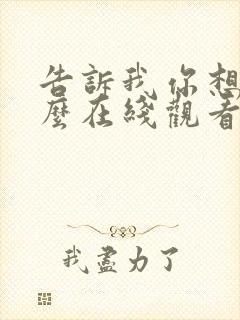 告訴我你想
麼在綫觀看
我盡力了